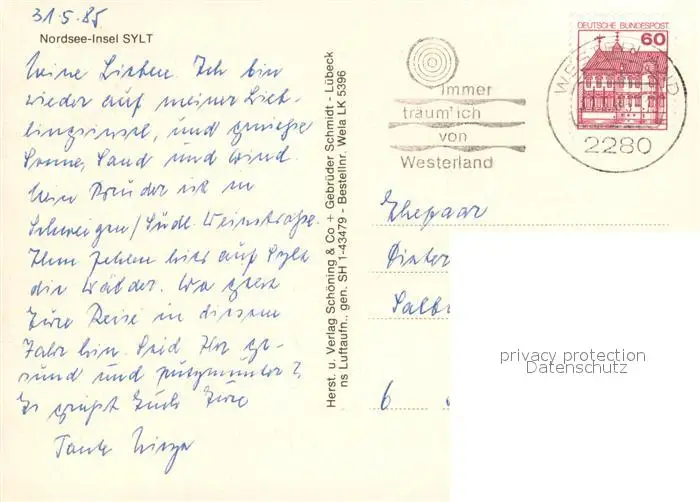 31.5.85
Nordsee-Insel SYLT
Meine Lieben. Ich bin
wieder auf meiner Lieb-
lingsinsel, und genieße
Sonne, Sand und Wind.
Mein Bruder ist in
Schweigen/Südl. Weinstraße.
Ihm fehlen hier auf Sylt
die Wälder. Wo geht
Eure Reise in diesem
Jahr hin. Seid Ihr ge-
sund und putzmunter?
Es grüßt Euch Eure
Tante
Herst. u. Verlag Schöning & Co + Gebrüder Schmidt - Lübeck
ns Luftaufn., gen. SH 1-43479 - Bestellnr. Wela LK 5396
Immer
träum' ich
von
Westerland
DEUTSCHE BUNDESPOST
60
WESTERLAND
2280
Ehepaar
Dieter
6
privacy protection
Datenschutz